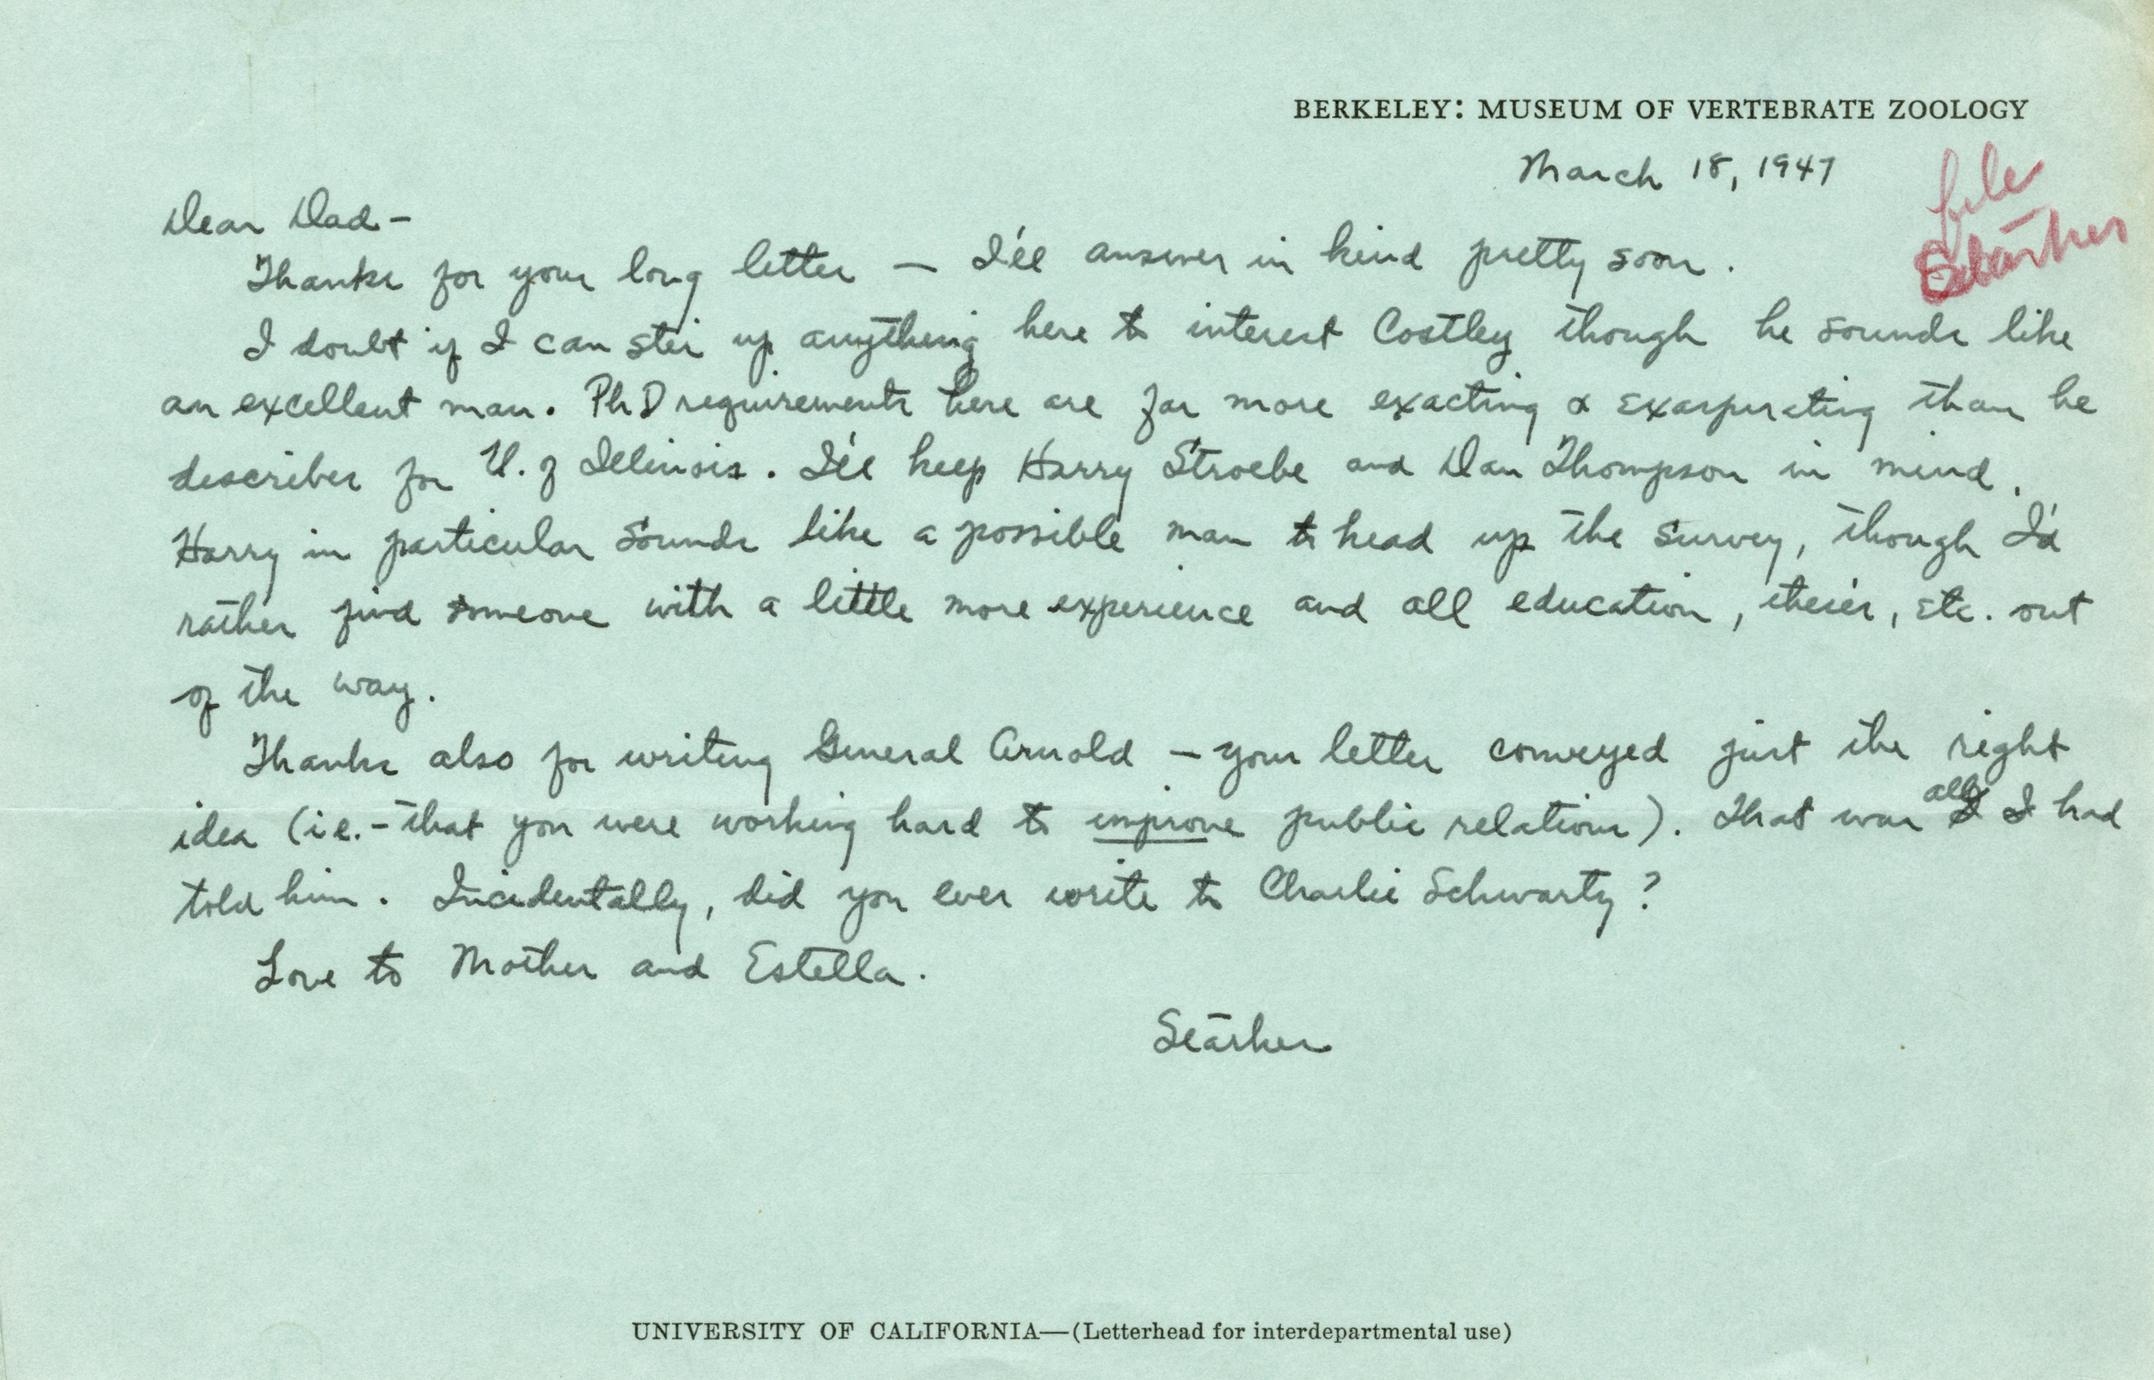 BERKELEY: MUSEUM OF VERTEBRATE ZOOLOGY
March 18, 1947
file
Starker
Dear Dad -
Thanks for your long letter — I'll answer in kind pretty soon.
I doubt if I can stir up anything here to interest Costley though he sounds like
an excellent man. PhD requirements here are far more exacting & exasperating than he
describes for U. of Illinois. I'll keep Harry Stroebe and Dan Thompson in mind.
Harry in particular sounds like a possible man to head up the survey, though I'd
rather find someone with a little more experience and all education, thesis, etc. out
of the way.
Thanks also for writing General Arnold — your letter conveyed just the right
idea (i.e. - that you were working hard to improve public relations). That was all I had
told him. Incidentally, did you ever write to Charlie Schwartz?
Love to Mother and Estella.
Starker
UNIVERSITY OF CALIFORNIA—(Letterhead for interdepartmental use)